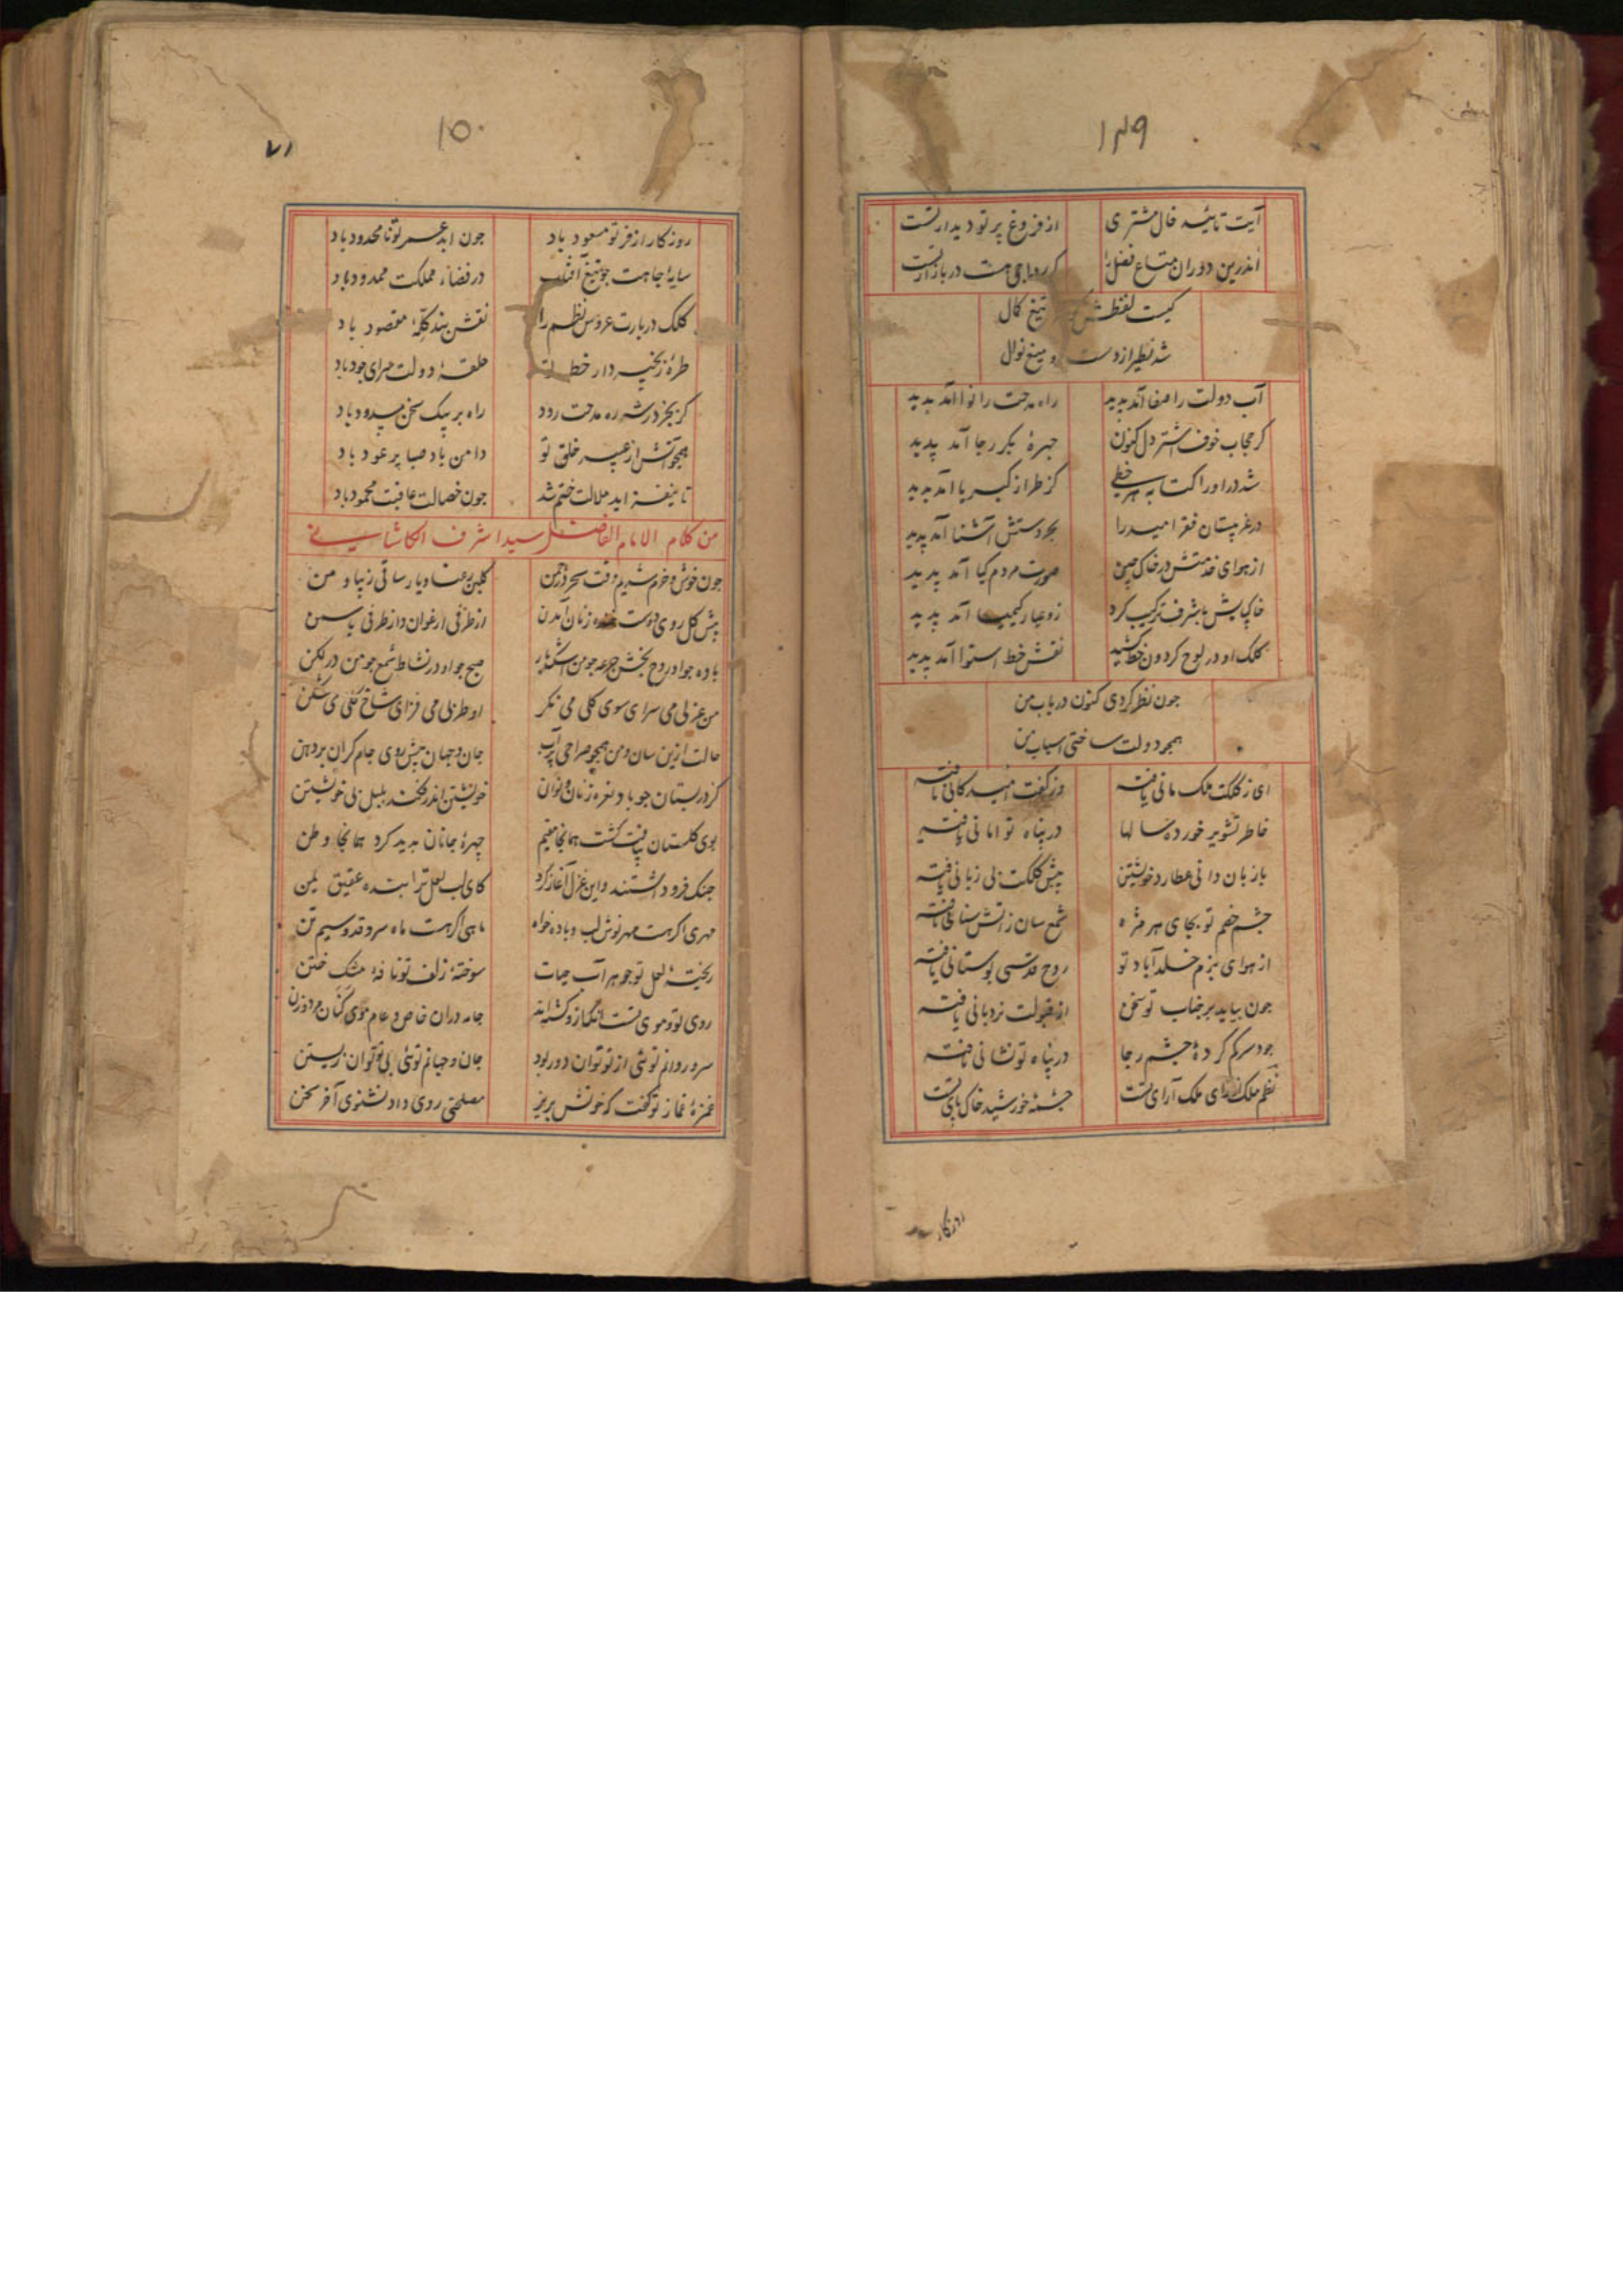 ۱۴۹
آیت تائید فال مشتری از فروغ پرتو دیدار تست
اندرین دوران متاع فضل را کر رواجی هست در بازار تست
کیست لفظش تیغ کال
شد نظیر از دست و میغ نوال
آب دولت را صفا آمد پدید راه مدحت را نوا آمد پدید
کر حجاب خوف اشتر دل کنون جهرهٔ بکر رجا آمد پدید
شد در اوراکتابه هر خطی کز طراز کبریا آمد پدید
در غریستان فقر امید را بجر دستش آشنا آمد پدید
از هوای خدمتش در خاک چین صورت مردم کیا آمد پدید
خاکپایش با شرف ترکیب کرد زو عیار کیمیا آمد پدید
کلک او در لوح کردون خط کشید نقش خط استوا آمد پدید
جون نظر کردی کنون در باب من
همجو دولت ساختی اسباب من
ای ز کلکت ملک مانی یافته وز کفت امید کانی یافته
خاطر تشویر خورده سالها در پناه تو امانی یافته
با زبان دانی عطارد خویشتن پیش کلکت بی زبانی یافته
جشم خصم تو بجای هر مژه شمع سان ز آتش سنانی یافته
از هوای بزم خلد آباد تو روح قدسی بوستانی یافته
جون بیاید بر جناب تو سخن از قبولت نردبانی یافته
جود سرکم کردهٔ جشم رجا در پناه تو نشانی یافته
نظم ملک از رای ملک آرای تست جشمهٔ خورشید خاک پای تست
روزکار
۱۵۰
۷۱
روزکار از فر تو مسعود باد جون ابد عمر تو نا محدود باد
سایهٔ جاهت جو تیغ آفتاب در فضاء مملکت ممدود باد
کلک دربارت عروس نظم را نقش بند کلهٔ مقصود باد
طرهٔ زنجیر دار خط تو حلقهٔ دولت سرای جود باد
کر بجز در شه ره مدحت رود راه بر پیک سخن مسدود باد
همجو آتش از عبیر خلق تو دامن باد صبا پر عود باد
تا نیفتد ابد ملالت ختم شد جون خصالت عاقبت محمود باد
من کلام الامام الفاضل سید اشرف الکاشانی
جون خوش و خرم شدیم وقت سحر در جمن کلبن رعنا و یار ساقی زیبا و من
پیش کل روی دوست خنده زنان آمدن از طرفی ارغوان و از طرفی یاسمن
باده جو او در روح بخش جرعه جو من اشکبار صبح جو او در نشاط شمع جو من در لکن
من غزلی می سرای سوی کلی می نکر او طربی می فزای شاخ کلی می شکن
حالت ازین سان و من همجو صراحی پر آب جان و جهان پیش روی جام کران بر دهن
کز در بستان جو باد نعره زنان و نوان خویشتن اندر فکند بلبل بی خویشتن
بوی کلستان بیافت کشت همانجا مقیم جهرهٔ جانان بدید کرد همانجا وطن
جنک فرو داشتند و این غزل آغاز کرد کای لب لعل ترا بنده عقیق یمن
مهری اکر هست مهر نوش لب و باده خواه ماهی اکر هست ماه سرو قد و سیم تن
ریختهٔ لعل تو جوهر آب حیات سوختهٔ زلف تو نافهٔ مشک ختن
روی تو و موی تست انکه ازو کشته اند جامه دران خاص و عام موی کنان مرد و زن
سرو روانم توئی از تو توان دور بود جان و جهانم توئی بی تو توان زیستن
غمزهٔ غماز تو کفت که خونش بریز مصلحتی روی داد نشنوی آخر سخن